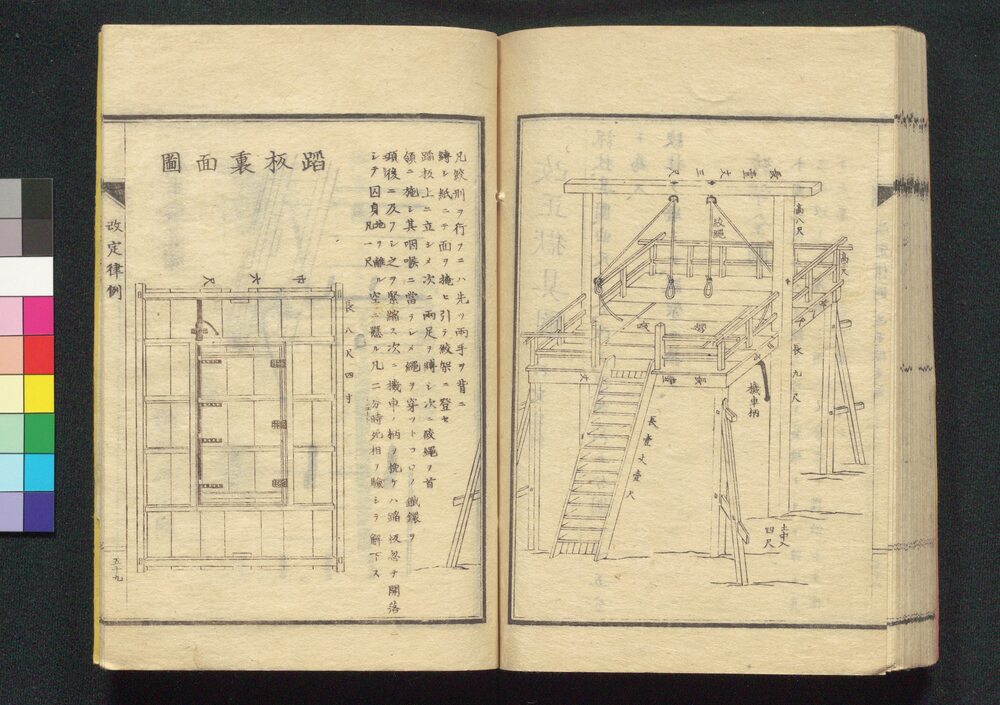 長壹丈三尺
高八尺
絞繩
高尺
長九尺
機車柄
長壹丈
長壹丈壹尺
土中入
四尺
凡絞刑ヲ行フニハ先ツ兩手ヲ背ニ
縛シ紙ニテ面ヲ掩ヒ引テ絞架ニ登セ
蹈板上ニ立シメ次ニ兩足ヲ縛シ次ニ絞繩ヲ首
領ニ施シ其咽喉ニ當ラシメ繩ヲ穿ツトコロノ鐵鐶ヲ
頸後ニ及フシ之ヲ緊縮ス次ニ機車ノ柄ヲ挽ケハ蹈板忽チ開落
シテ囚身地ヲ離ル凡一尺空ニ懸ル凡二分時死相ヲ驗シテ解下ス
蹈板裏面圖
巾六尺
長八尺四寸
改定律例
五十九